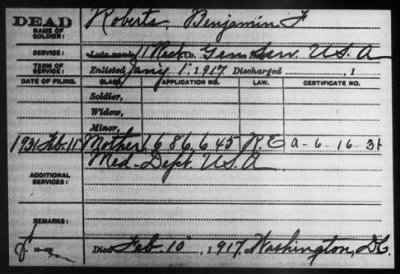 DEAD
NAME OF SOLDIER: Roberts, Benjamin F
SERVICE: Late rank, 11 Rect Co. Gen. Serv. U.S.A
TERM OF SERVICE: Enlisted Jany 1, 1917 Discharged , 1
DATE OF FILING. CLASS. APPLICATION NO. LAW. CERTIFICATE NO.
Soldier,
Widow,
Minor,
1931 Feb. 11 Mother 1686,645 R.E a-6-16-31
ADDITIONAL SERVICES: Med. Dept. U.S.A
REMARKS:
Died Feb. 10, 1917, Washington, D.C.